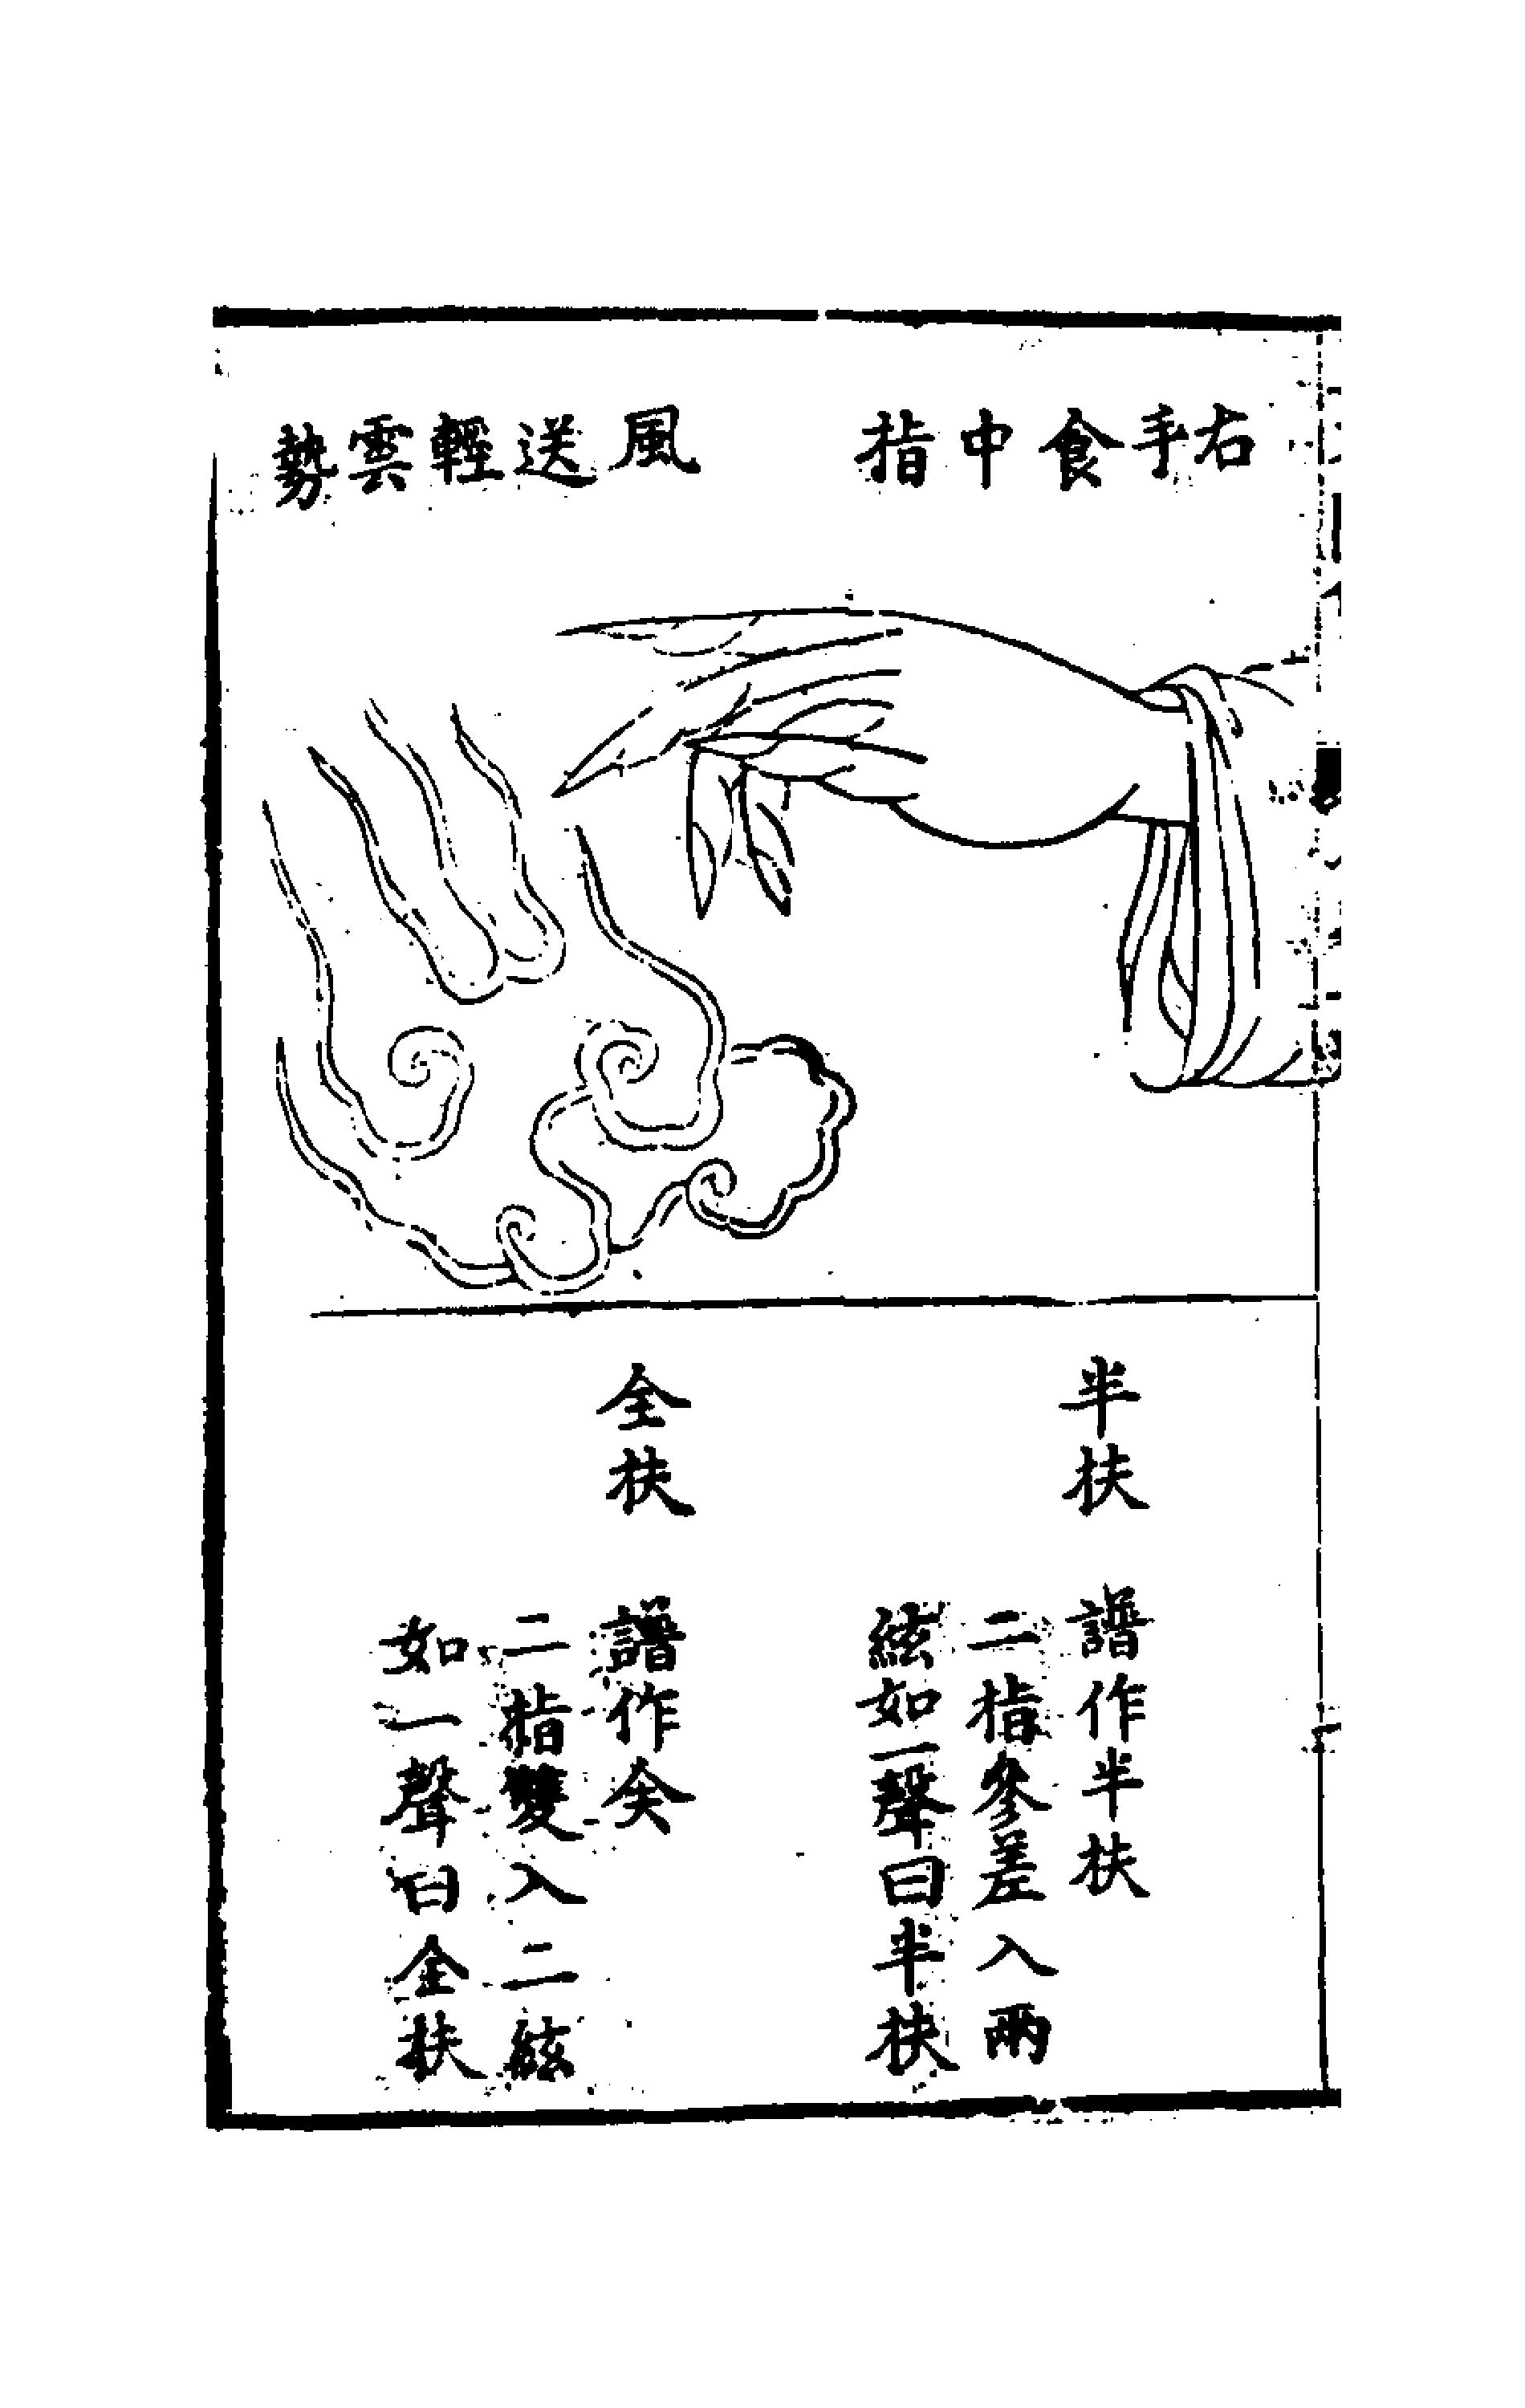 右手食中指
風送輕雲勢
半扶
譜作半扶
二指參差入兩
絃如一聲曰半扶
全扶
譜作𡗗
二指雙入二絃
如一聲曰全扶